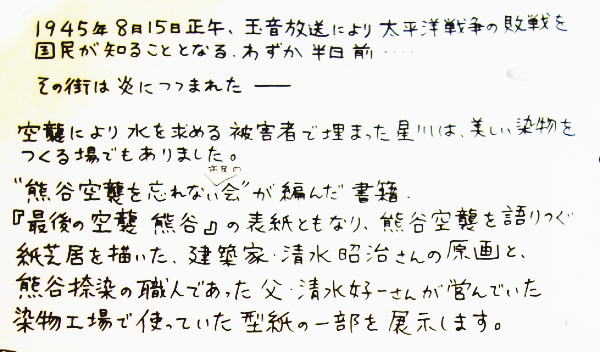 1945年8月15日正午、玉音放送により太平洋戦争の敗戦を
国民が知ることとなる、わずか半日前‥‥
その街は炎につつまれた ――
空襲により水を求める被害者で埋まった星川は、美しい染物を
つくる場でもありました。
市民の
"熊谷空襲を忘れない会"が編んだ書籍.
『最後の空襲 熊谷』の表紙ともなり、熊谷空襲を語りつぐ
紙芝居を描いた、建築家・清水昭治さんの原画と、
熊谷捺染の職人であった父・清水好一さんが営んでいた
染物工場で使っていた型紙の一部を展示します。